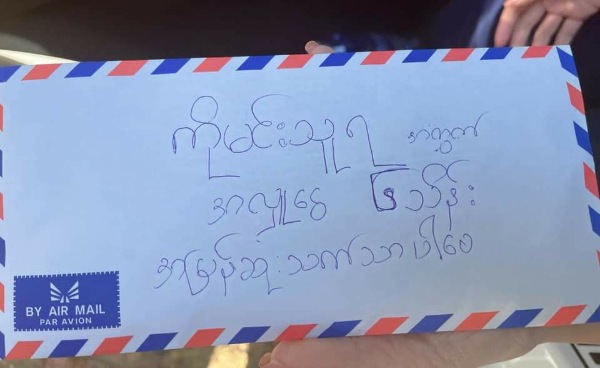 ကိုမင်းသူရ အတွက်
အလှူငွေ ၅ သိန်း
အမြန်ဆုံးသက်သာပါစေ
BY AIR MAIL
PAR AVION